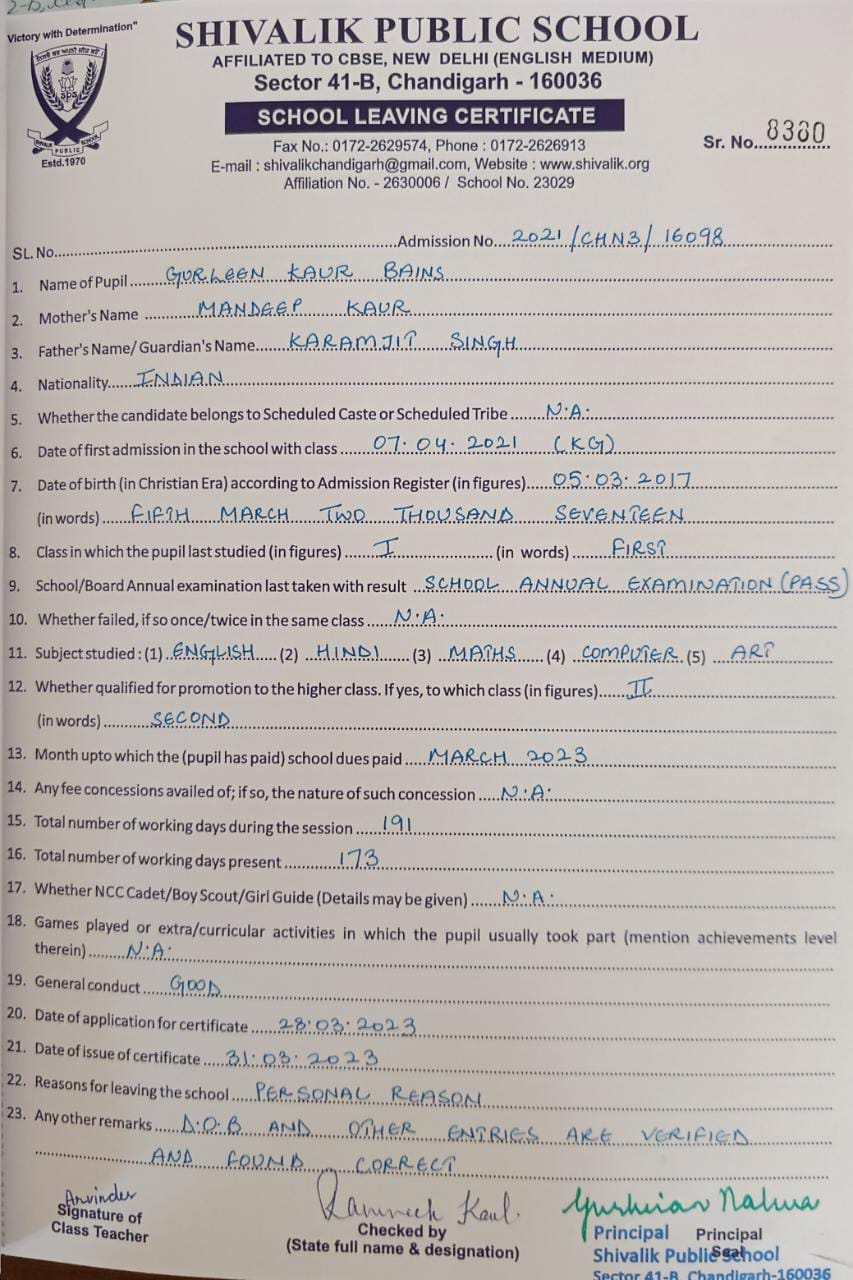 Victory with Determination"
SHIVALIK PUBLIC SCHOOL
AFFILIATED TO CBSE, NEW DELHI (ENGLISH MEDIUM)
Sector 41-B, Chandigarh - 160036
SCHOOL LEAVING CERTIFICATE
Fax No.: 0172-2629574, Phone : 0172-2626913
E-mail : shivalikchandigarh@gmail.com, Website : www.shivalik.org
Affiliation No. - 2630006 / School No. 23029
SPS
SHIVALIK PUBLIC SCHOOL
Estd.1970
Sr. No. 8380
SL. No. Admission No. 2021/CHN3/16098
1. Name of Pupil GURLEEN KAUR BAINS
2. Mother's Name MANDEEP KAUR
3. Father's Name/ Guardian's Name KARAMJIT SINGH
4. Nationality INDIAN
5. Whether the candidate belongs to Scheduled Caste or Scheduled Tribe N.A.
6. Date of first admission in the school with class 07.04.2021 (KG)
7. Date of birth (in Christian Era) according to Admission Register (in figures) 05.03.2017
(in words) FIFTH MARCH TWO THOUSAND SEVENTEEN
8. Class in which the pupil last studied (in figures) I (in words) FIRST
9. School/Board Annual examination last taken with result SCHOOL ANNUAL EXAMINATION (PASS)
10. Whether failed, if so once/twice in the same class N.A.
11. Subject studied : (1) ENGLISH (2) HINDI (3) MATHS (4) COMPUTER (5) ART
12. Whether qualified for promotion to the higher class. If yes, to which class (in figures) II
(in words) SECOND
13. Month upto which the (pupil has paid) school dues paid MARCH 2023
14. Any fee concessions availed of; if so, the nature of such concession N.A.
15. Total number of working days during the session 191
16. Total number of working days present 173
17. Whether NCC Cadet/Boy Scout/Girl Guide (Details may be given) N.A.
18. Games played or extra/curricular activities in which the pupil usually took part (mention achievements level
therein) N.A.
19. General conduct GOOD
20. Date of application for certificate 28.03.2023
21. Date of issue of certificate 31.03.2023
22. Reasons for leaving the school PERSONAL REASON
23. Any other remarks D.O.B AND OTHER ENTRIES ARE VERIFIED
AND FOUND CORRECT
Arvinder
Signature of
Class Teacher
Kaul.
Checked by
(State full name & designation)
Principal
Seal
Principal
Shivalik Public School
Sector 41-B, Chandigarh-160036